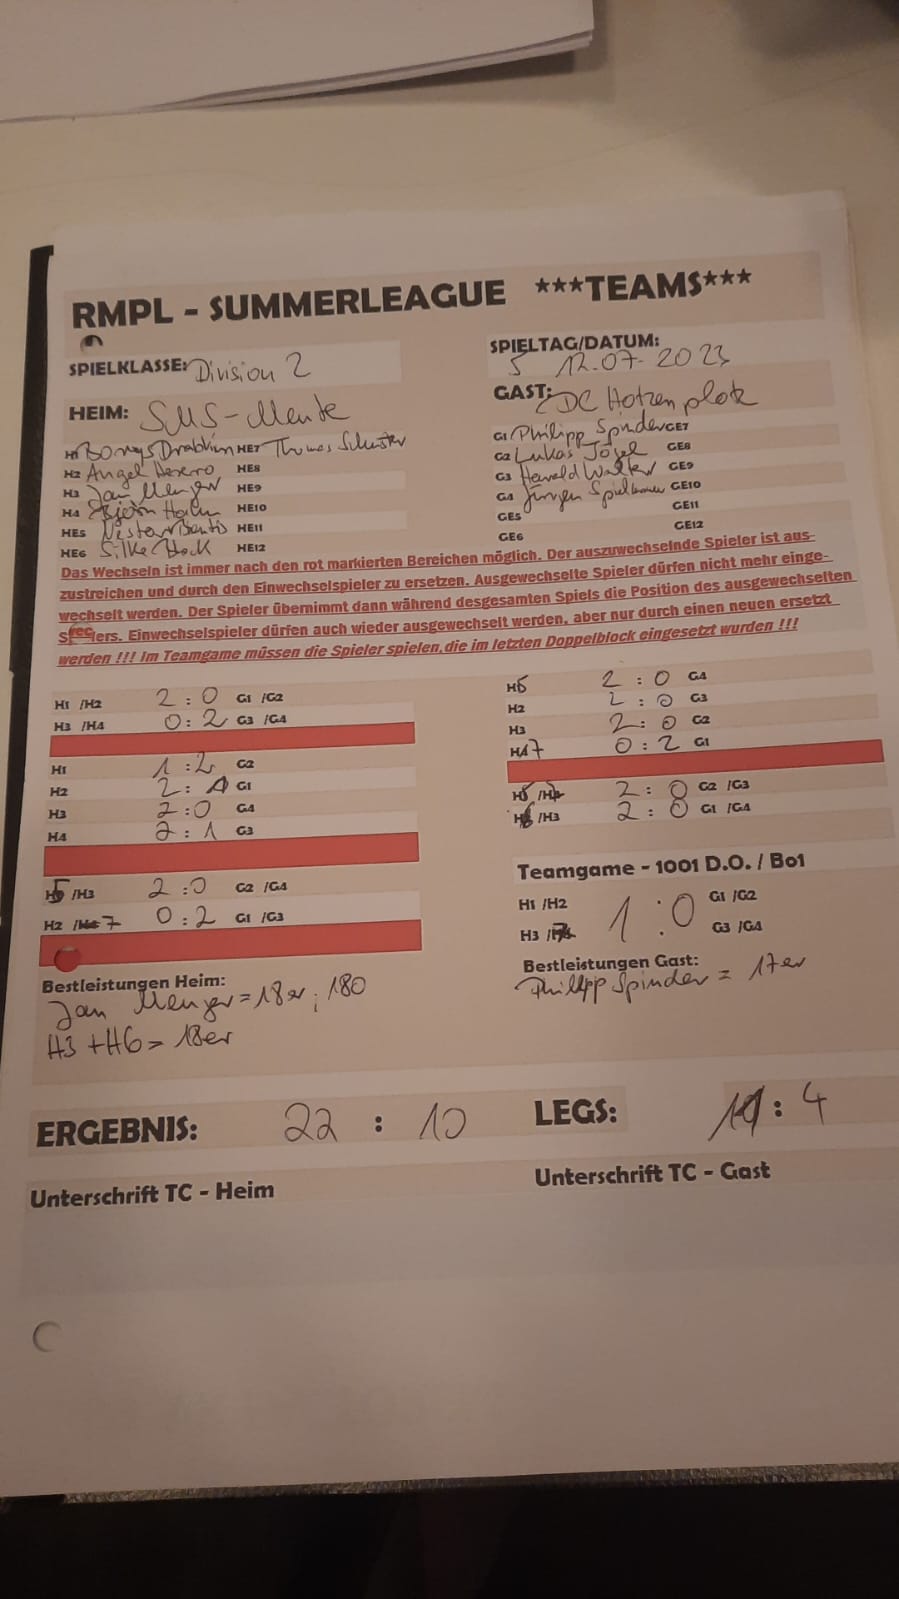 RMPL - SUMMERLEAGUE ***TEAMS***
SPIELKLASSE: Division 2
SPIELTAG/DATUM:
5 12.07-2023
HEIM: SMS-Meute
GAST: DC Hotzenplotz
H1 HE7 Thomas Schuster
H2 Angel HE8
H3 Jan Menger HE9
H4 HE10
HE5 HE11
HE6 Silke Block HE12
G1 Philipp Spinder GE7
G2 Lukas GE8
G3 Harald GE9
G4 Jürgen GE10
GE5 GE11
GE6 GE12
Das Wechseln ist immer nach den rot markierten Bereichen möglich. Der auszuwechselnde Spieler ist aus-
zustreichen und durch den Einwechselspieler zu ersetzen. Ausgewechselte Spieler dürfen nicht mehr einge-
wechselt werden. Der Spieler übernimmt dann während desgesamten Spiels die Position des ausgewechselten
lers. Einwechselspieler dürfen auch wieder ausgewechselt werden, aber nur durch einen neuen ersetzt
werden !!! Im Teamgame müssen die Spieler spielen, die im letzten Doppelblock eingesetzt wurden !!!
H1 /H2 2 : 0 G1 /G2
H3 /H4 0 : 2 G3 /G4
H1 1 : 2 G2
H2 2 : 1 G1
H3 2 : 0 G4
H4 2 : 1 G3
5 /H3 2 : 0 G2 /G4
H2 / 7 0 : 2 G1 /G3
H5 2 : 0 G4
H2 2 : 0 G3
H3 2 : 0 G2
H 7 0 : 2 G1
2 : 0 G2 /G3
/H3 2 : 0 G1 /G4
Teamgame - 1001 D.O. / Bo1
H1 /H2 G1 /G2
1 : 0
H3 / G3 /G4
Bestleistungen Heim:
Jan Menger = 18er, 180
H3 + H6 = 18er
Bestleistungen Gast:
Philipp Spinder = 17er
ERGEBNIS: 22 : 10
LEGS: : 4
Unterschrift TC - Heim
Unterschrift TC - Gast